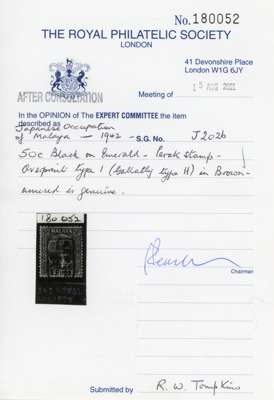 No. 180052
THE ROYAL PHILATELIC SOCIETY
LONDON
41 Devonshire Place
London W1G 6JY
AFTER CONSULTATION
Meeting of
15 AUG
In the OPINION of The EXPERT COMMITTEE the item
described as Japanese Occupation
of Malaya — 1942 - S.G. No. J202b
50c Black on Emerald - Perak stamp -
Overprint type 1 in Brown -
unused is genuine.
180 052
MALAYA
Chairman
Submitted by R. W. Tompkins